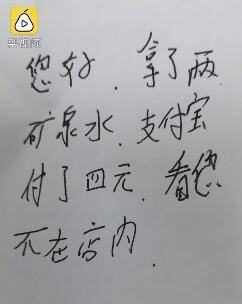 梨视频
您好，拿了两
矿泉水，支付宝
付了四元，看您
不在店内，